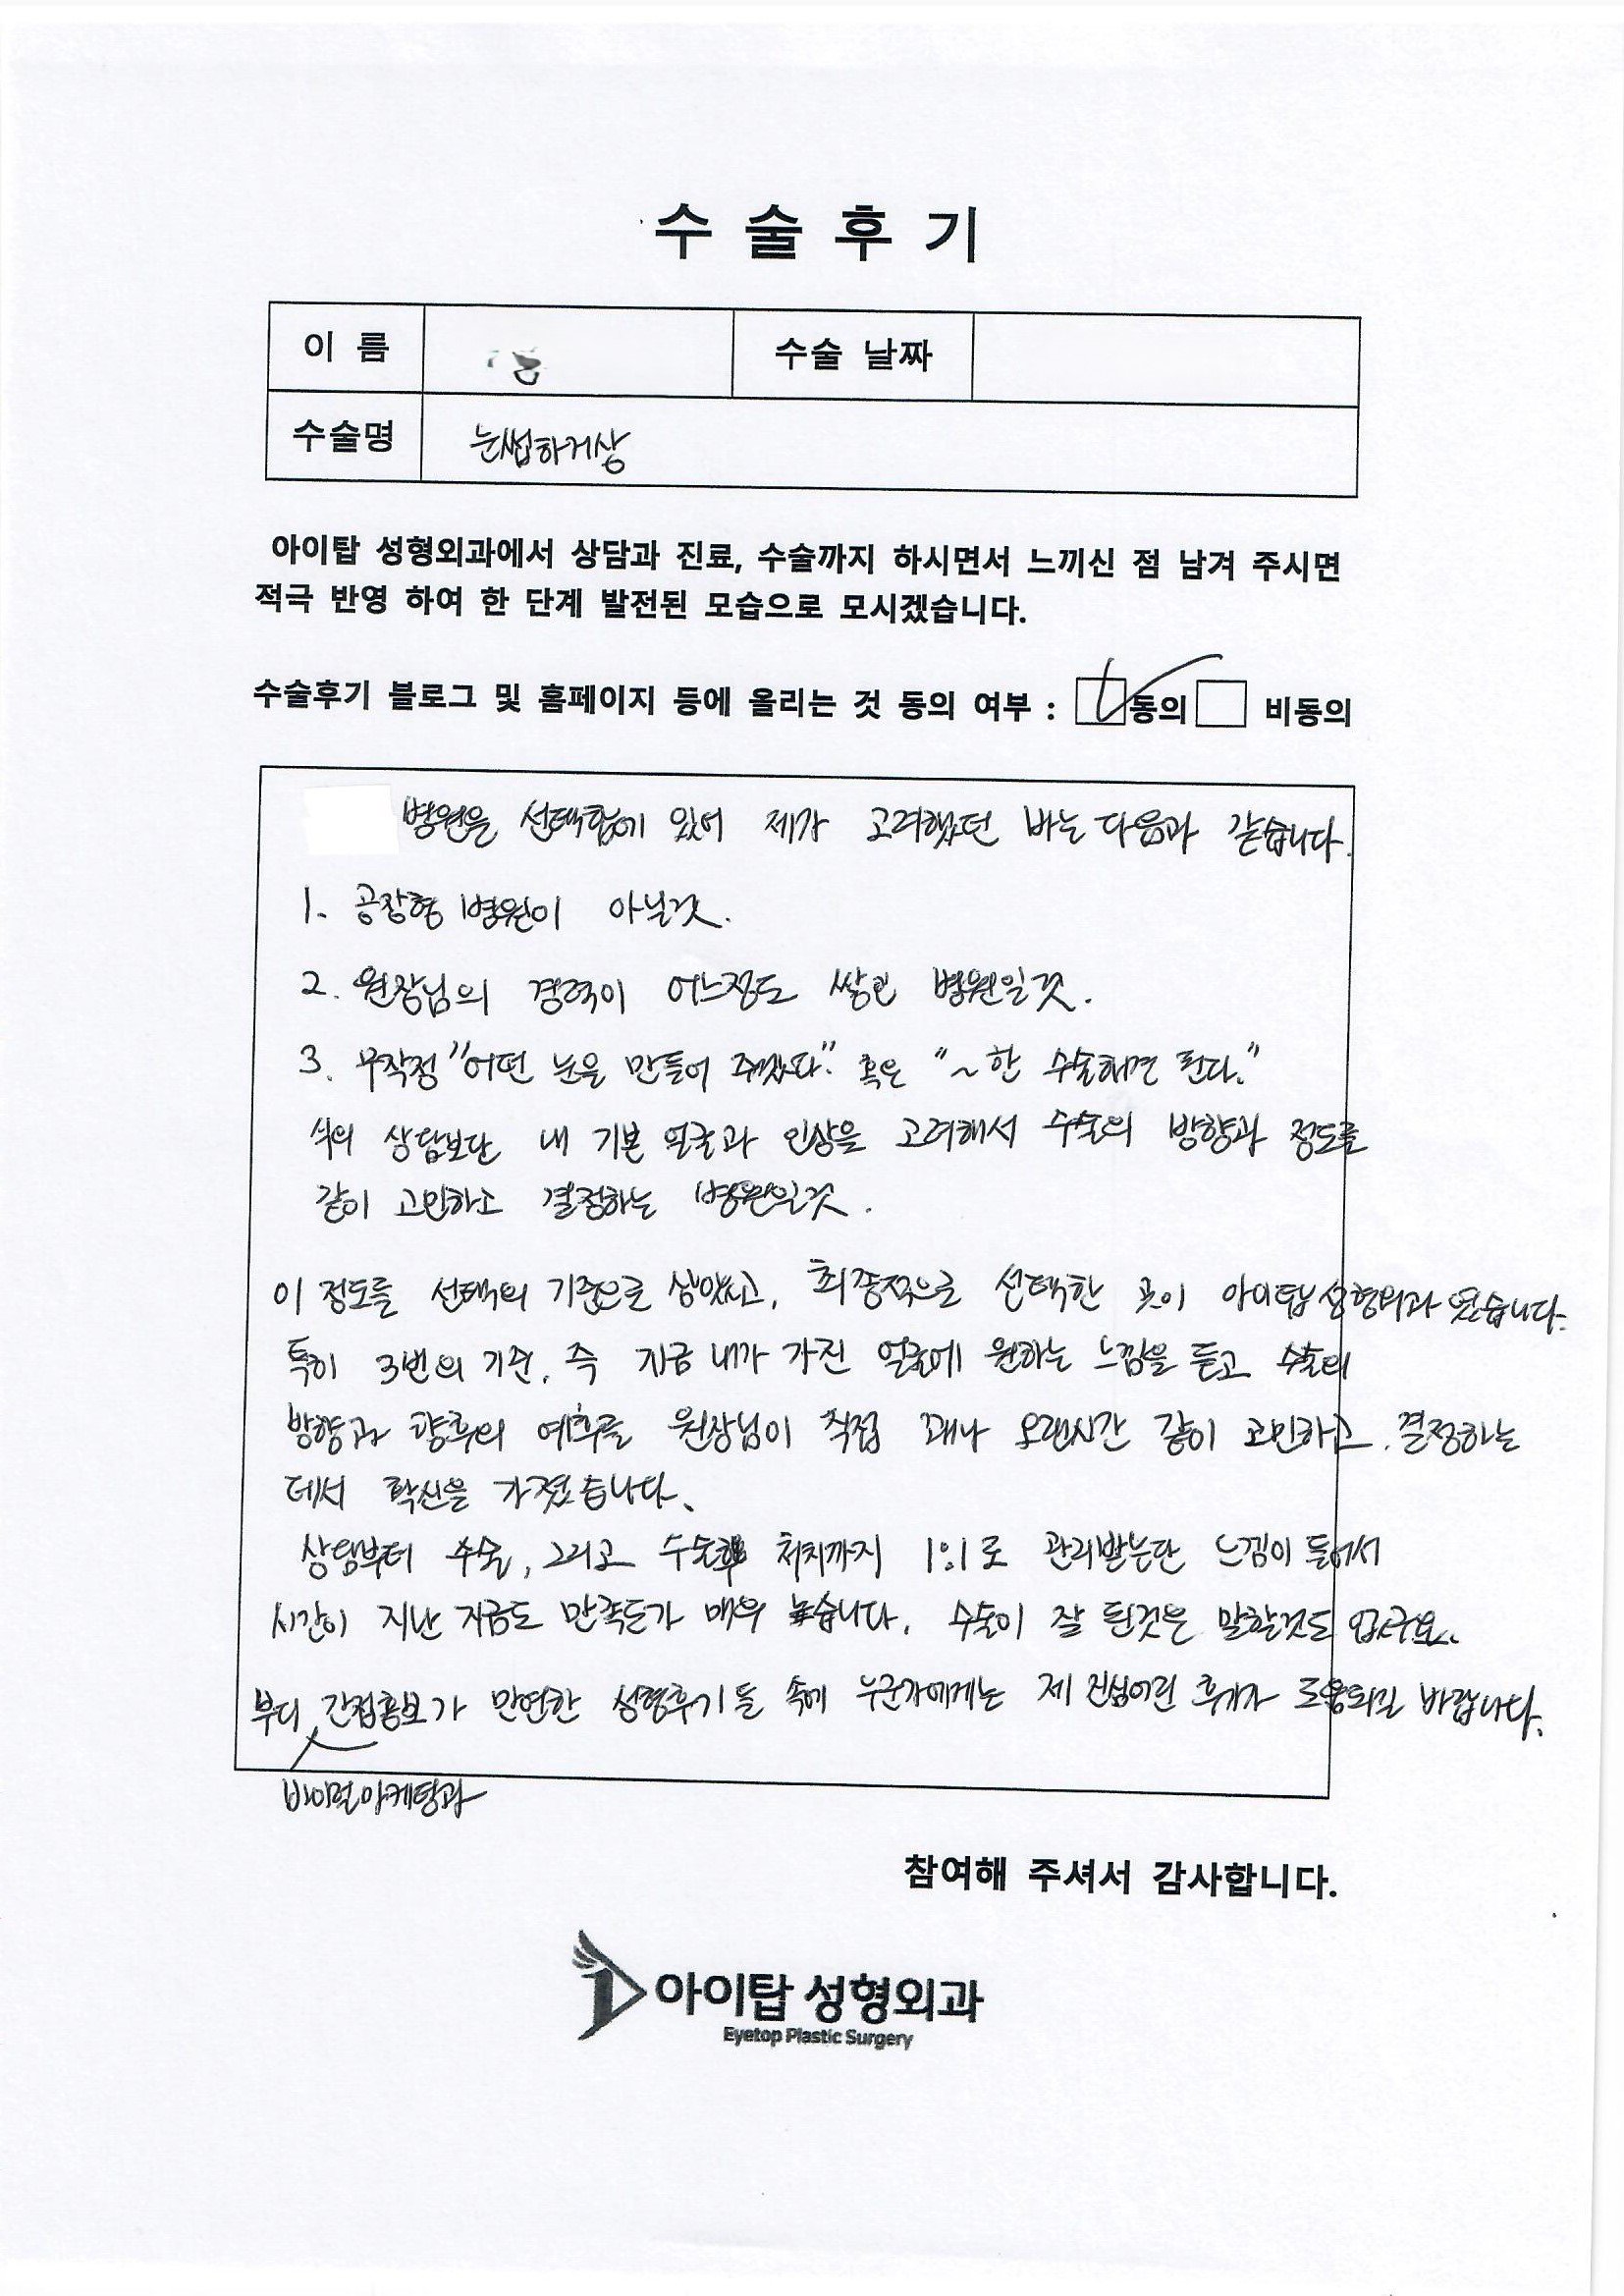 수술후기
이 름
수술 날짜
수술명 눈썹하거상
아이탑 성형외과에서 상담과 진료, 수술까지 하시면서 느끼신 점 남겨 주시면
적극 반영 하여 한 단계 발전된 모습으로 모시겠습니다.
수술후기 블로그 및 홈페이지 등에 올리는 것 동의 여부 : 동의 비동의
병원을 선택함에 있어 제가 고려했던 바는 다음과 같습니다.
1. 공장형 병원이 아닐것.
2. 원장님의 경력이 어느정도 쌓인 병원일것.
3. 무작정 "어떤 눈을 만들어 주겠다." 혹은 "~한 수술하면 된다."
식의 상담보단 내 기본 얼굴과 인상을 고려해서 수술의 방향과 정도를
같이 고민하고 결정하는 병원일것.
이 정도를 선택의 기준으로 삼았고, 최종적으로 선택한 곳이 아이탑성형외과 였습니다.
특히 3번의 기준, 즉 지금 내가 가진 얼굴에 원하는 느낌을 듣고 수술의
방향과 향후의 예후를 원장님이 직접 꽤나 오랜시간 같이 고민하고, 결정하는
데서 확신을 가졌습니다.
상담부터 수술, 그리고 수술후 처치까지 1:1로 관리받는단 느낌이 들어서
시간이 지난 지금도 만족도가 매우 높습니다. 수술이 잘 된것은 말할것도 없구요.
부디 간접홍보가 만연한 성형후기들 속에 누군가에게는 제 진심어린 후기가 도움되길 바랍니다.
바이럴마케팅과
참여해 주셔서 감사합니다.
아이탑 성형외과
Eyetop Plastic Surgery